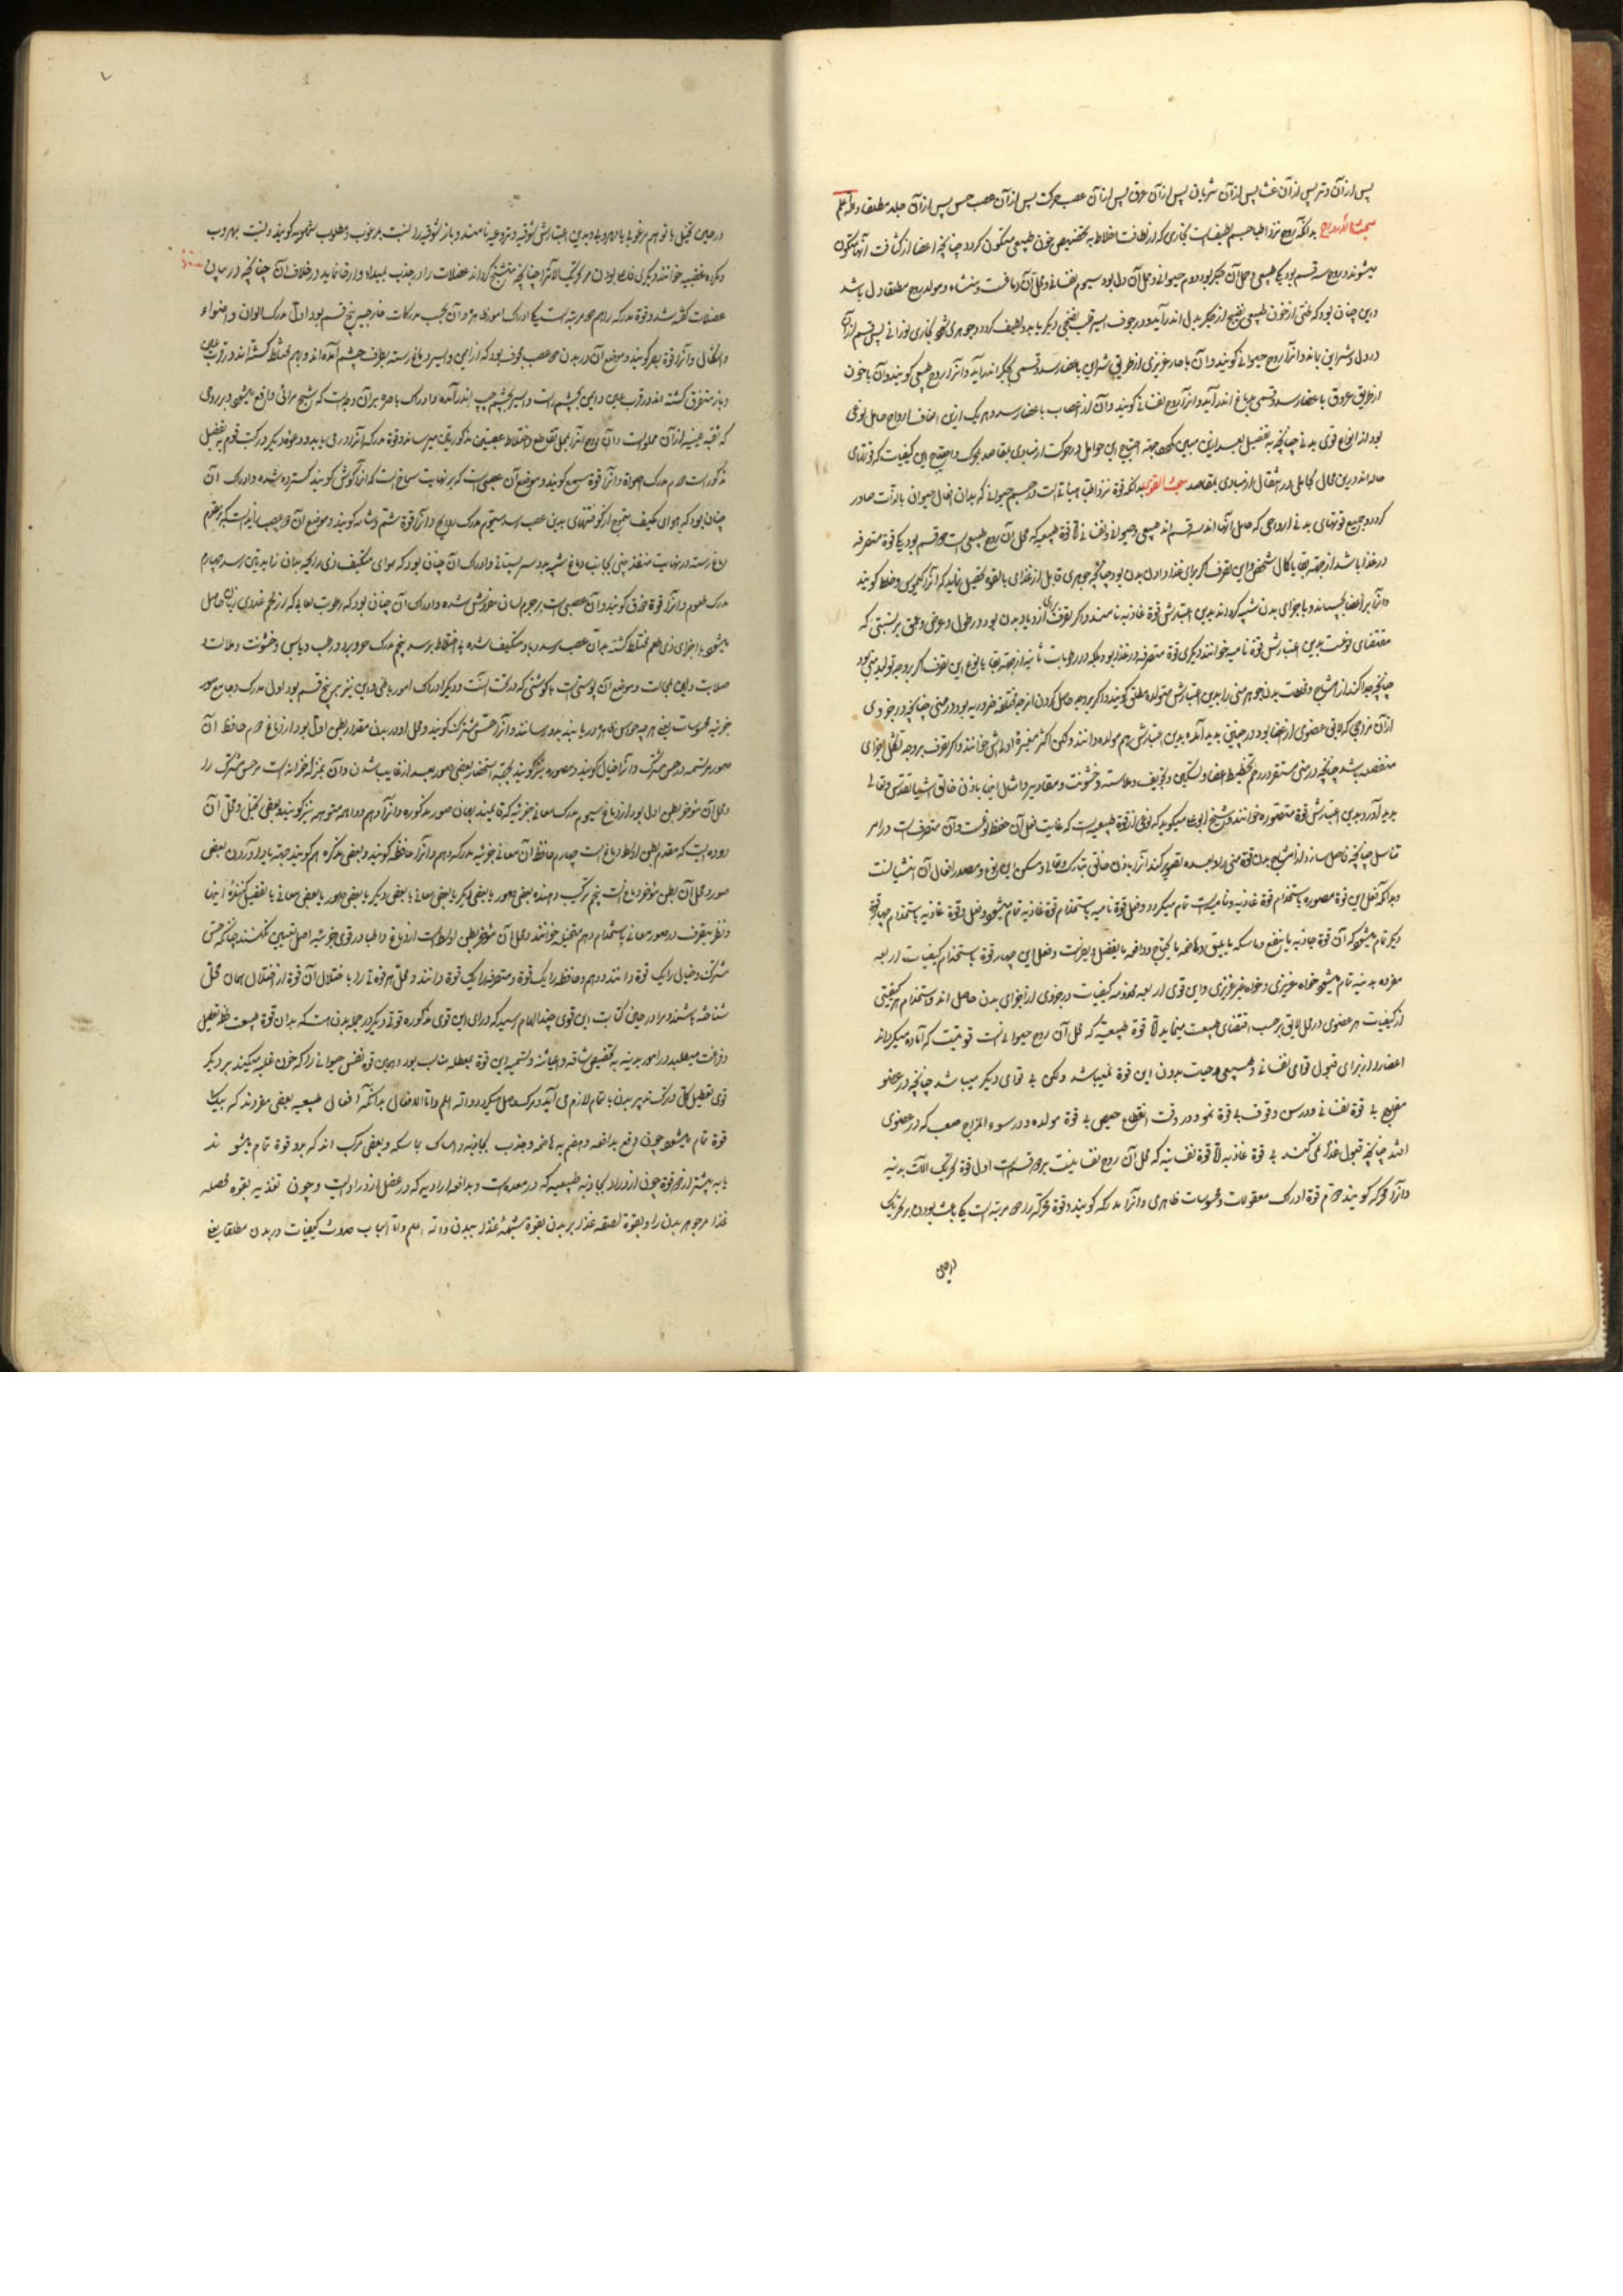 پس از آن وتر پس از آن غشا پس از آن شریان پس از آن عرق پس از آن عصب حرکت پس از آن عصب حس پس از آن جلد مطلقا والله اعلم
مبحث الارواح بدانکه روح نزد اطبا جسم لطیف است بخاری که از لطافت اخلاط به تخصیص خون طبیعی متکون گردد چنانچه اعضا از کثافت آنها متکون
میشوند و روح سه قسم بود یکی طبیعی و محل آن جگر بود دوم حیوانی و محل آن دل بود سیوم نفسانی و محل آن دماغست و منشاء و مولد روح مطلقا دل باشد
و این چنان بود که قسطی از خون طبیعی نضیج از جگر بدل اندر آید و در جوف ایسر قلب نضجی دیگر یابد و لطیف گردد و جوهری شود بخاری نورانی پس قسم از آن
در دل و شراین باند و آنرا روح حیوانی گویند و آن با حار غریزی از طریق شراین باعضا رسد و قسمی بجگر اندر آید و آنرا روح طبیعی گویند و آن با خون
از طریق عروق باعضا رسد و قسمی بدماغ اندر آید و آنرا روح نفسانی گویند و آن از اعصاب باعضا رسد و هر یک ازین اصناف ارواح حامل نوعی
بود از انواع قوی بدنی چنانچه به تفصیل بعد ازین مبین گردد و جهت احتیاج این حوامل در حرکت از مبادی بمقاصد محرک و احتیاج این کیفیات که قوتهای
حاله اند درین محال بحاملی در انتقال از مبادی بمقاصد مبحث القوی بدانکه قوة نزد اطبا هیأتی است در جسم حیوانی که بدان افعال حیوان بالذات صادر
گردد و جمیع قوتهای بدنی ارواحی که حامل آنها اند سه قسم اند طبیعی و حیوانی و نفسانی اما قوة طبیعیه که محل آن روح طبیعی است دو قسم بود یکی قوة متصرفه
در غذا باشد از جهة بقا یا کمال شخص و این تصرف اگر برای غذا دادن بدن بود چنانچه جوهری قابل از غذای بالقوه تحصیل نماید که آنرا کیموس و خلط گویند
و آنرا بر اعضا بچسپاند و باجزای بدن شبیه گرداند بدین اعتبارش قوة غاذیه نامند و اگر تصرف برای ازدیاد بدن بود در طول و عرض و عمق بر نسبتی که
مقتضای نوعست بدین اعتبارش قوة نامیه خوانند دیگری قوة متصرفه در غذا بود بلکه در رطوبات ثانیه از جهة بقا یا نوع این تصرف اگر بر وجه تولید منی بود
چنانچه جدا کند از امشاج و فضلات بدن جوهر منی را بدین اعتبارش مولده مطلق گویند و اگر بر وجه حاصل کردن امزجه مختلفه ضروریه بود در منی چنانچه در هر جزوی
از آن مزاجی که لایق عضوی از اعضا بود در جنین پدید آمده بدین اعتبارش هم مولده دانند و لکن اکثر مغیرة اولی اش خوانند و اگر تصرف بر وجه تشکل اجزای
منفصله باشد چنانچه در منی مستقر در رحم تخطیط اعضا و تشکیل و تجویف و ملاست و خشونت و مقادیر و امثال اینها باذن خالق اشیا تقدس و تعالی
پدید آورد بدین اعتبارش قوة مصوره خوانند و شیخ ابو علی میگوید که نوعی از قوة طبیعیه است که غایت فعل آن حفظ نوعست و آن متصرف است در امر
تناسل چنانچه فاصل سازد از امشاج بدن قوة منی را و بعده تصویر کند آنرا باذن خالق تبارک و تعالی و مسکن این نوع و مصدر افعال آن انثیین است
و بدانکه فعل این قوة مصوره باستخدام قوة غاذیه و نامیه است تمام میگردد و فعل قوة نامیه باستخدام قوة غاذیه تمام میشود و فعل قوة غاذیه باستخدام چهار قوة
دیگر تمام میشود که آن قوة جاذبه یا ینفع و ماسکه یا یلیق و هاضمه یا یحتاج و دافعه یا یفضل و یضرست و فعل این چهار قوة باستخدام کیفیات اربعه
مفرده بدنیه تمام میشود خواه غریزی و خواه غیر غریزی و این قوی اربعه مخدومه کیفیات در جزوی از اجزای بدن حاصل اند و استخدام هر کیفیتی
از کیفیات هر عضوی در محل لایق بر حسب اقتضای طبیعت مینماید اما قوة طبیعیه که محل آن روح حیوانی است قوتیست که آماده میگرداند
اعضا را از برای قبول قوای نفسانی و طبیعی و حیات بدون این قوة نمیباشد و لکن بی قوای دیگر میباشد چنانچه در عضو
مفلوج بی قوة نفسانی و در سن وقوف بی قوة نمو و در وقت انقطاع حیض بی قوة مولده و در سوء المزاج صعب که در عضوی
افتد چنانچه قبول غذا نمی کند بی قوة غاذیه اما قوة نفسانیه که محل آن روح نفسانیست بر دو قسم است اول قوة تحریک آلات بدنیه
و آنرا محرکه گویند دوم قوة ادراک معقولات و محسوسات ظاهری و آنرا مدرکه گویند و قوة محرکه را دو مرتبه است یکی باعث بودن بر تحریک
در حین
در حین تخیل یا توهم مرغوب یا مهروب و بدین اعتبارش شوقیه و نزوعیه نامند و باز شوقیه را نسبت بمرغوب و مطلوب شهویه گویند و نسبت بمهروب
و مکروه غضبیه خوانند دیگری فاعله بودن مر تحریک آلات را چنانچه متشنج گرداند عضلات را در جذب بمبداء و ارخا نماید در خلاف آن چنانچه در بیان
عضلات گفته شد و قوة مدرکه را هم دو مرتبه است یکی ادراک امور ظاهره و آن بحسب مدرکات خارجیه پنج قسم بود اول مدرک الوان و اضواء
و اشکال و آنرا قوة بصر گویند و موضع آن در بدن دو عصب مجوف بود که از ایمن و ایسر دماغ رسته بطرف چشم آمده اند و بهم مختلط گشته اند در قرب
و باز متفرق گشته اند و ایمن بچشم راست و ایسر بچشم چپ اندر آمده و ادراک باصره بر آن وجه است که شبح مرائی واقع میشود بر روی
که ثقبه عینیه از آن مملو است و آن روح آنرا بمحل تقاطع و اختلاط عصبتین مذکورتین میرساند و قوة مدرکه آنرا در می یابد و وجوه دیگر در کتب قوم به تفصیل
مذکور است دوم مدرک اصوات و آنرا قوة سمع گویند و موضع آن عصبی است که بر نهایت سماخ است که آنرا گوش گویند گسترده شده و ادراک آن
چنان بود که هوای مکیف بتموج از کوفتنهای بدین عصب رسد سیوم مدرک روایح و آنرا قوة شم و شامه گویند و موضع آن دو عصب زاید است که بر مقدم
دماغ رسته در نهایت منفذ بینی بجانب دماغ شبیه بدو سر پستانی و ادراک آن چنان بود که هوای متکیف ذی رایحه بدان زایدتین رسد چهارم
مدرک طعوم و آنرا قوة ذوق گویند و آن عصبی است بر جرم لسان مفروش شده و ادراک آن چنان بود که رطوبت لعابیه که از لحم غددی زبان حاصل
میشود باجزای ذی طعم مختلط گشته بدان عصب رسد و یا متکیف شده بی اختلاط برسد پنجم مدرک حر و برد و رطب و یابس و خشونت و ملاست و
صلابت و لین و امثالت و موضع آن پوستی است با گوشتی که در تحت آنست و دیگر ادراک امور باطنی و این نیز هم پنج قسم بود اول مدرک و جامع صور
جزئیه محسوسات یعنی هر چه حواس ظاهره دریابند بدو رسانند و آنرا حس مشترک گویند و محل او در بدن مقدم بطن اول بود از دماغ دوم حافظ آن
صور مرتسمه در حس مشترک و آنرا خیال گویند و مصوره نیز گویند بجهة استحضار بعضی صور بعد از غایب شدن و آن بمنزله خزانه است مر حس مشترک را
و محل آن مؤخر بطن اول بود از دماغ سیوم مدرک معانی جزئیه که قایمند بهمان صور مذکوره و آنرا وهم و واهمه و متوهمه نیز گویند و بعضی تخیل و محل آن
دوده است که مقدم بطن اوسط دماغ است چهارم حافظ آن معانی جزئیه مدرکه وهم و آنرا حافظه گویند و بعضی متذکره هم گویند جهة بیاد آوردن بعضی
صور و محل آن بطن مؤخر دماغ است پنجم ترکیب دهنده بعضی صور با بعضی دیگر یا بعضی معانی با بعضی دیگر یا بعضی صور با بعضی معانی یا تفصیل کننده اینها
و نظر بتصرف در صور و معانی باستخدام وهم متخیله خوانند و محل آن مؤخر بطن اوسط است از دماغ و اطبا در قوی جزئیه اصل تعیین نکنند چنانکه حس
مشترک و خیال را یک قوة دانند و وهم و حافظه را یک قوة و متصرفه را یک قوة دانند و محل هر قوة را با اختلال آن قوة از اختلال همان محل
شناخته باشند و مرا در حین کتابت این قوی چند الهام رسید که ورای این قوی مذکوره قوتی دیگر در جمله بدن هست که بدان قوة طبیعت حفظ تعطیل
و فراغت میطلبد در امور بدنیه به تخصیص شاقه و تسمیه این قوة بمعطله مناسب بود و همین قوة نفس حیوانی را که خون غلبه میکند بر دیگر
قوی تعطیل کلی و ترک تدبیر بدن بالتمام لازم می آید و مرگ حاصل میگردد والله اعلم و اما الافعال بدانکه افعال طبیعیه بعضی مفردند که بیک
قوة تمام میشود چون دفع بدافعه و هضم به هاضمه و جذب بجاذبه و امساک بماسکه و بعضی مرکب اند که بدو قوة تمام میشوند
یا به بیشتر از دو قوة چون ازدراد بجاذبه طبیعیه که در معده است و بدافعه ارادیه که در عضل ازدراد است و چون تغذیه بقوه محصله
غذا مر جوهر بدن را و بقوة ملصقه غذا بر بدن بقوة مشبهه غذا ببدن والله اعلم و اما اسباب حدوث کیفیات در بدن مطلقا یعنی